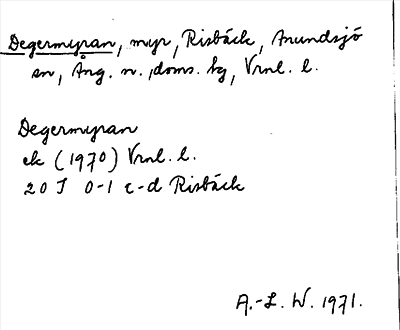 Degermyran, myr, Risbäck, Anundsjö
sn, Ång. n. doms. bg, Vrnl. l.
Degermyran
ek (1970) Vrnl. l.
20 J 0-1 c-d Risbäck
A.-L. W. 1971.